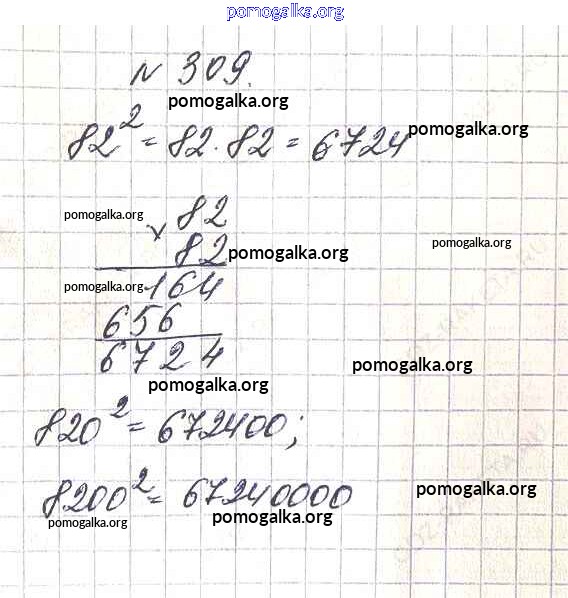 pomogalka.org
№ 309.
pomogalka.org
82² = 82 · 82 = 6724 pomogalka.org
pomogalka.org 82
× 82 pomogalka.org pomogalka.org
pomogalka.org 164
656
6724
pomogalka.org
pomogalka.org
820² = 672400;
8200² = 67240000 pomogalka.org
pomogalka.org pomogalka.org